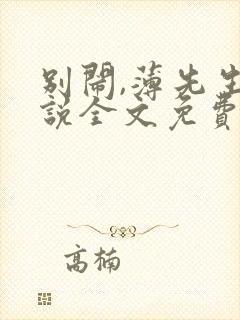 別鬧,薄先生
說全文免費
高楠